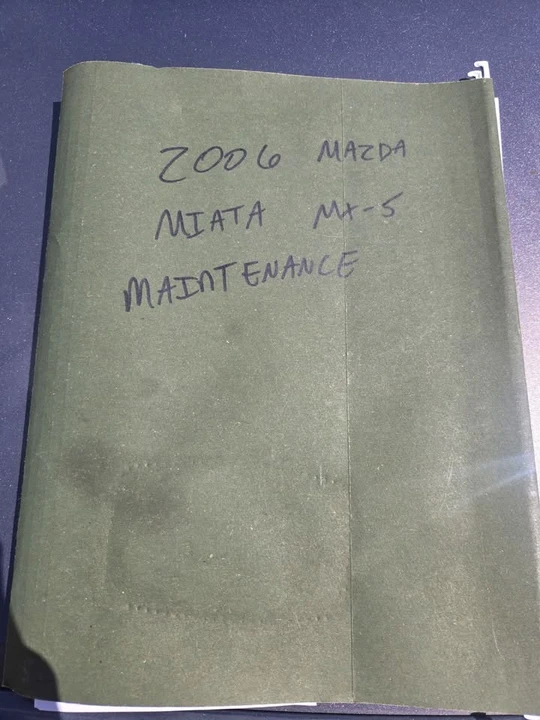 2006 MAZDA
MIATA MX-5
MAINTENANCE